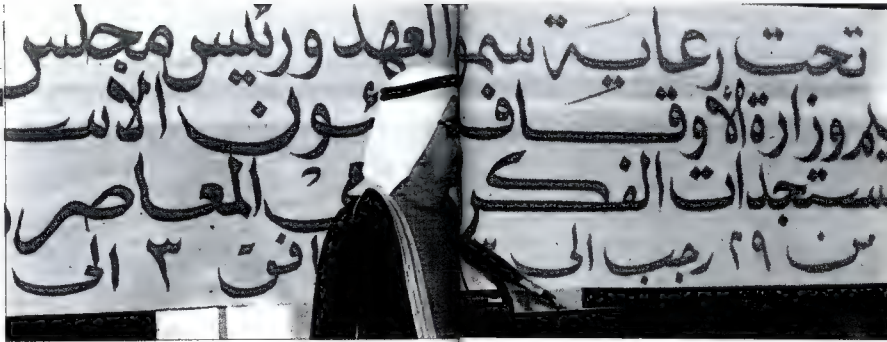 تحت رعاية سمو العهد ورئيس مجلس
وزارة الأوقاف ئون الأسـ
ستجدات الفكر في المعاصر
من ٢٩ رجب الى افق ٣ الى